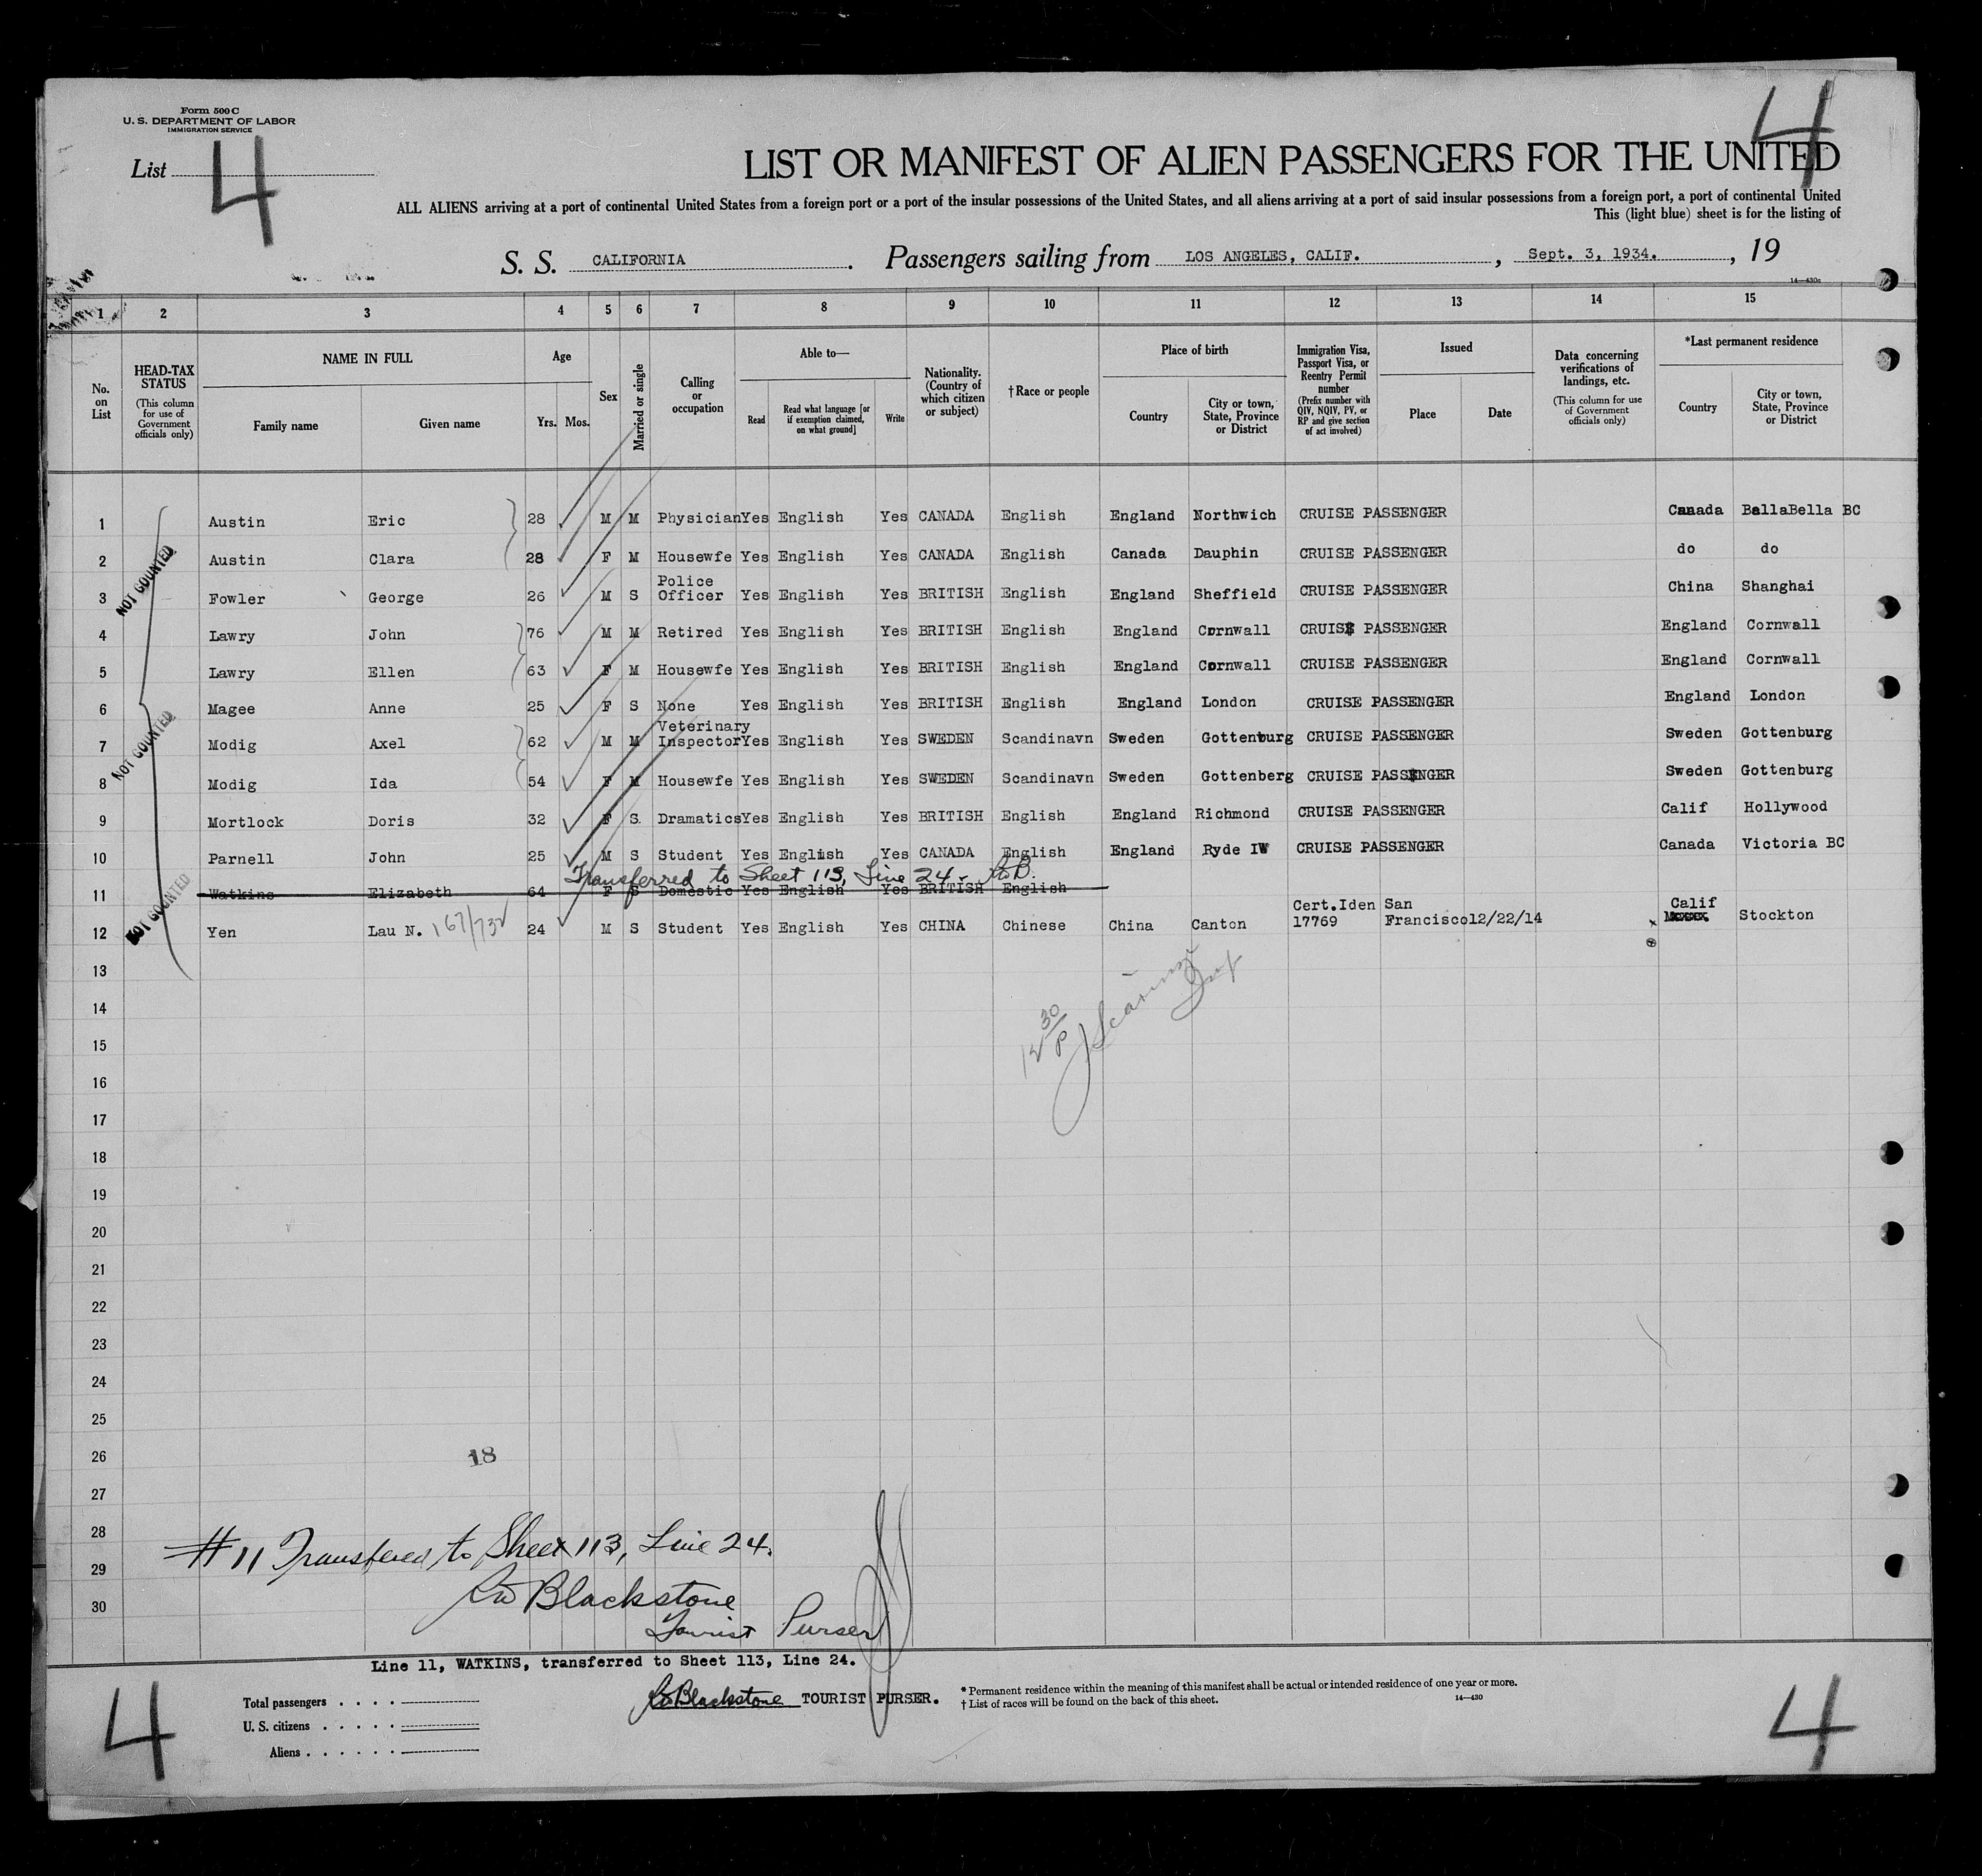 Form 500 C
U. S. DEPARTMENT OF LABOR
IMMIGRATION SERVICE
List 4
4
LIST OR MANIFEST OF ALIEN PASSENGERS FOR THE UNITED
ALL ALIENS arriving at a port of continental United States from a foreign port or a port of the insular possessions of the United States, and all aliens arriving at a port of said insular possessions from a foreign port, a port of continental United
This (light blue) sheet is for the listing of
S. S. CALIFORNIA. Passengers sailing from LOS ANGELES, CALIF., Sept. 3, 1934., 19
14—430c
1 2 3 4 5 6 7 8 9 10 11 12 13 14 15
No. on List
HEAD-TAX STATUS (This column for use of Government officials only)
NAME IN FULL
Family name Given name
Age
Yrs. Mos.
Sex
Married or single
Calling or occupation
Able to—
Read Read what language [or if exemption claimed, on what ground] Write
Nationality. (Country of which citizen or subject)
† Race or people
Place of birth
Country City or town, State, Province or District
Immigration Visa, Passport Visa, or Reentry Permit number (Prefix number with QIV, NQIV, PV, or RP and give section of act involved)
Issued
Place Date
Data concerning verifications of landings, etc. (This column for use of Government officials only)
*Last permanent residence
Country City or town, State, Province or District
1 Austin Eric 28 M M Physician Yes English Yes CANADA English England Northwich CRUISE PASSENGER Canada BellaBella BC
2 Austin Clara 28 F M Housewfe Yes English Yes CANADA English Canada Dauphin CRUISE PASSENGER do do
NOT COUNTED
3 Fowler George 26 M S Police Officer Yes English Yes BRITISH English England Sheffield CRUISE PASSENGER China Shanghai
4 Lawry John 76 M M Retired Yes English Yes BRITISH English England Cornwall CRUISE PASSENGER England Cornwall
5 Lawry Ellen 63 F M Housewfe Yes English Yes BRITISH English England Cornwall CRUISE PASSENGER England Cornwall
6 Magee Anne 25 F S None Yes English Yes BRITISH English England London CRUISE PASSENGER England London
NOT COUNTED
7 Modig Axel 62 M M Veterinary Inspector Yes English Yes SWEDEN Scandinavn Sweden Gottenburg CRUISE PASSENGER Sweden Gottenburg
8 Modig Ida 54 F M Housewfe Yes English Yes SWEDEN Scandinavn Sweden Gottenberg CRUISE PASSENGER Sweden Gottenburg
9 Mortlock Doris 32 F S Dramatics Yes English Yes BRITISH English England Richmond CRUISE PASSENGER Calif Hollywood
10 Parnell John 25 M S Student Yes English Yes CANADA English England Ryde IW CRUISE PASSENGER Canada Victoria BC
Transferred to Sheet 113, Line 24 -
11 Watkins Elizabeth 64 F S Domestic Yes English Yes BRITISH English
NOT COUNTED
12 Yen Lau N. 167/732 24 M S Student Yes English Yes CHINA Chinese China Canton Cert.Iden 17769 San Francisco 12/22/14 Calif Stockton
13
14
12 30/P
15
16
17
18
19
20
21
22
23
24
25
26
18
27
28
#11 Transfered to Sheet 113, Line 24.
29
Blackstone
30
Tourist Purser
Line 11, WATKINS, transferred to Sheet 113, Line 24.
Blackstone TOURIST PURSER.
Total passengers . . . .
U. S. citizens . . . . .
Aliens . . . . . .
* Permanent residence within the meaning of this manifest shall be actual or intended residence of one year or more.
† List of races will be found on the back of this sheet.
14—430
4
4